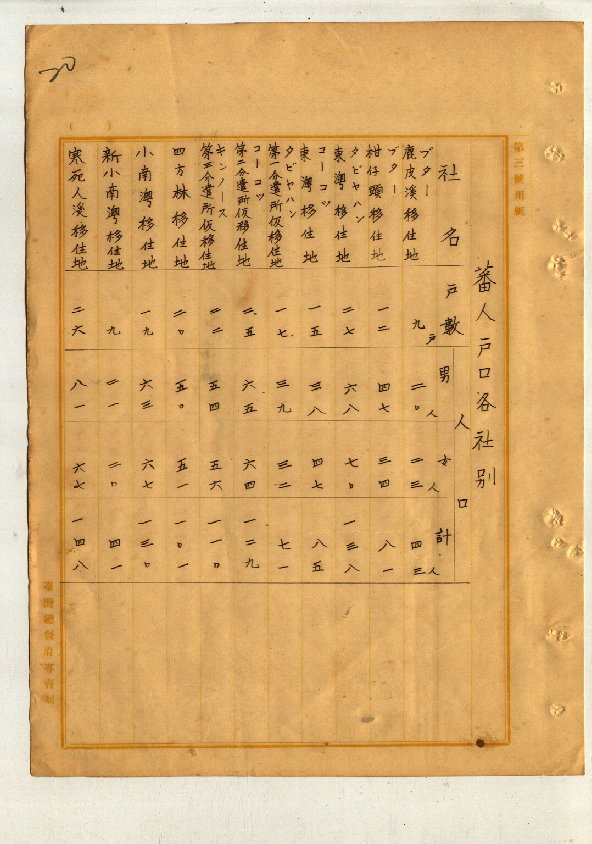 第三號用紙
蕃人戶口各社別
社名 戶數 人口 男 女 計
ブター
鹿皮溪移住地 九戶 二〇人 二三人 四三人
ブター
柑仔頭移住地 一二 四七 三四 八一
タビヤハン
東澳移住地 二七 六八 七〇 一三八
コーゴツ
東澳移住地 一五 三八 四七 八五
タビヤハン
第一分遣所仮移住地 一七 三九 三二 七一
コーゴツ
第二分遣所仮移住地 二五 六五 六四 一二九
キンノース
第三分遣所仮移住地 二二 五四 五六 一一〇
四方林移住地 二〇 五〇 五一 一〇一
小南澳移住地 一九 六三 六七 一三〇
新小南澳移住地 九 二一 二〇 四一
寒死人溪移住地 二六 八一 六七 一四八
臺灣總督府專賣局